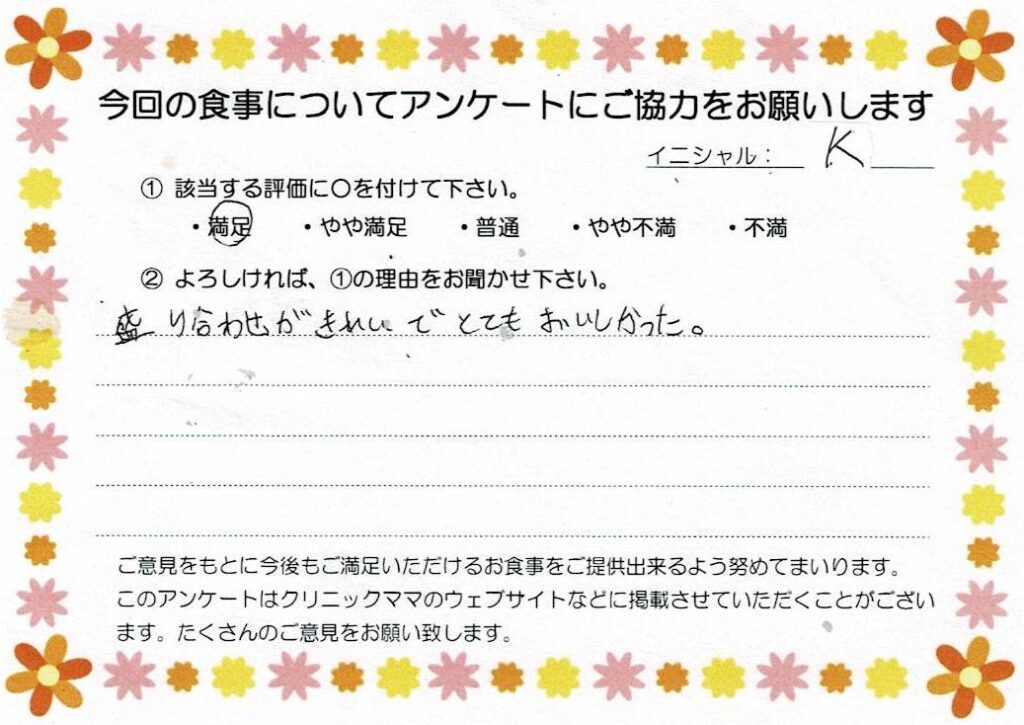 今回の食事についてアンケートにご協力をお願いします
イニシャル： K
① 該当する評価に〇を付けて下さい。
・満足 ・やや満足 ・普通 ・やや不満 ・不満
② よろしければ、①の理由をお聞かせ下さい。
盛り合わせがきれいでとてもおいしかった。
ご意見をもとに今後もご満足いただけるお食事をご提供出来るよう努めてまいります。
このアンケートはクリニックママのウェブサイトなどに掲載させていただくことがござい
ます。たくさんのご意見をお願い致します。